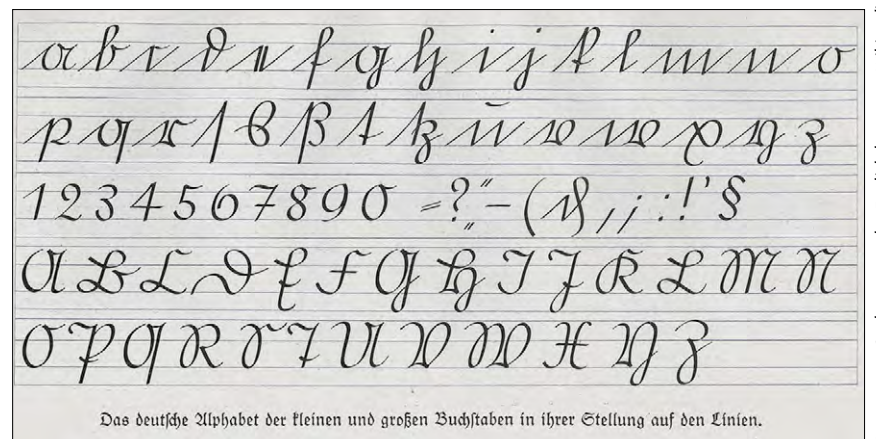 a b c d e f g h i j k l m n o
p q r ſ s ß t tz u v w x y z
1 2 3 4 5 6 7 8 9 0 = ? „ “ – ( , ; : ! ' §
A B C D E F G H I J K L M N
O P Q R S T U V W X Y Z
Das deutſche Alphabet der kleinen und großen Buchſtaben in ihrer Stellung auf den Linien.